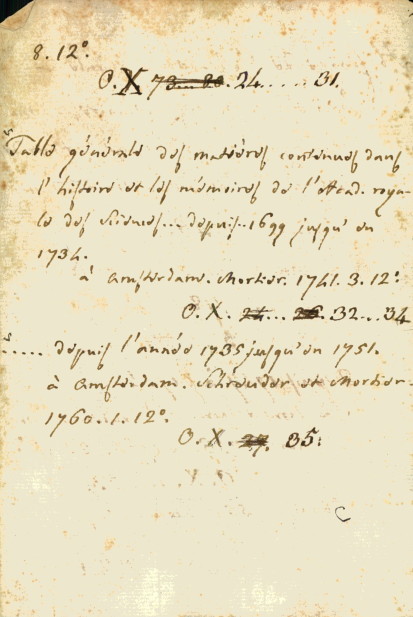 8. 12°.
O. X 73...80. 24..... 31.
Table générale des matières contenues dans
l'histoire et les mémoires de l'Acad. roya-
le des Sciences... depuis.. 1699 jusqu'en
1734.
à Amsterdam. Mortier. 1741. 3. 12°.
O. X. 24... 26. 32... 34
..... depuis l'année 1735 jusqu'en 1751.
à Amsterdam. Schreuder et Mortier.
1760. 1. 12°.
O. X. 27. 35.
C